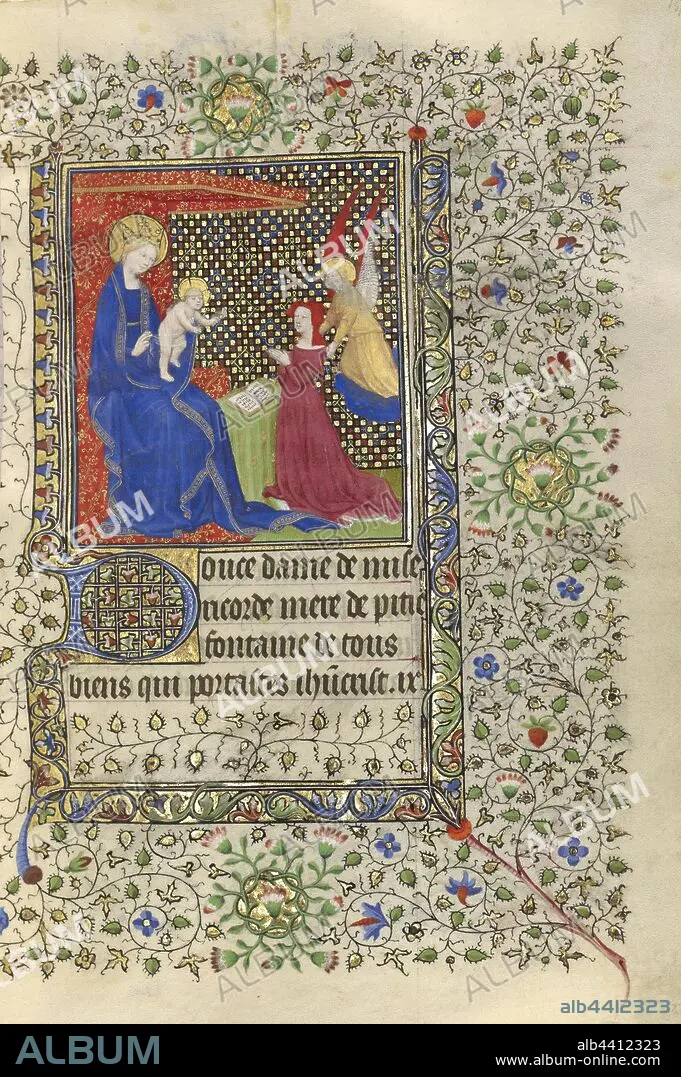 Douce dame de mise
ricorde mere de pitie
fontaine de tous
biens qui portastes ihūcrist. ix
alb4412323
ALBUM
alb4412323
www.album-online.com